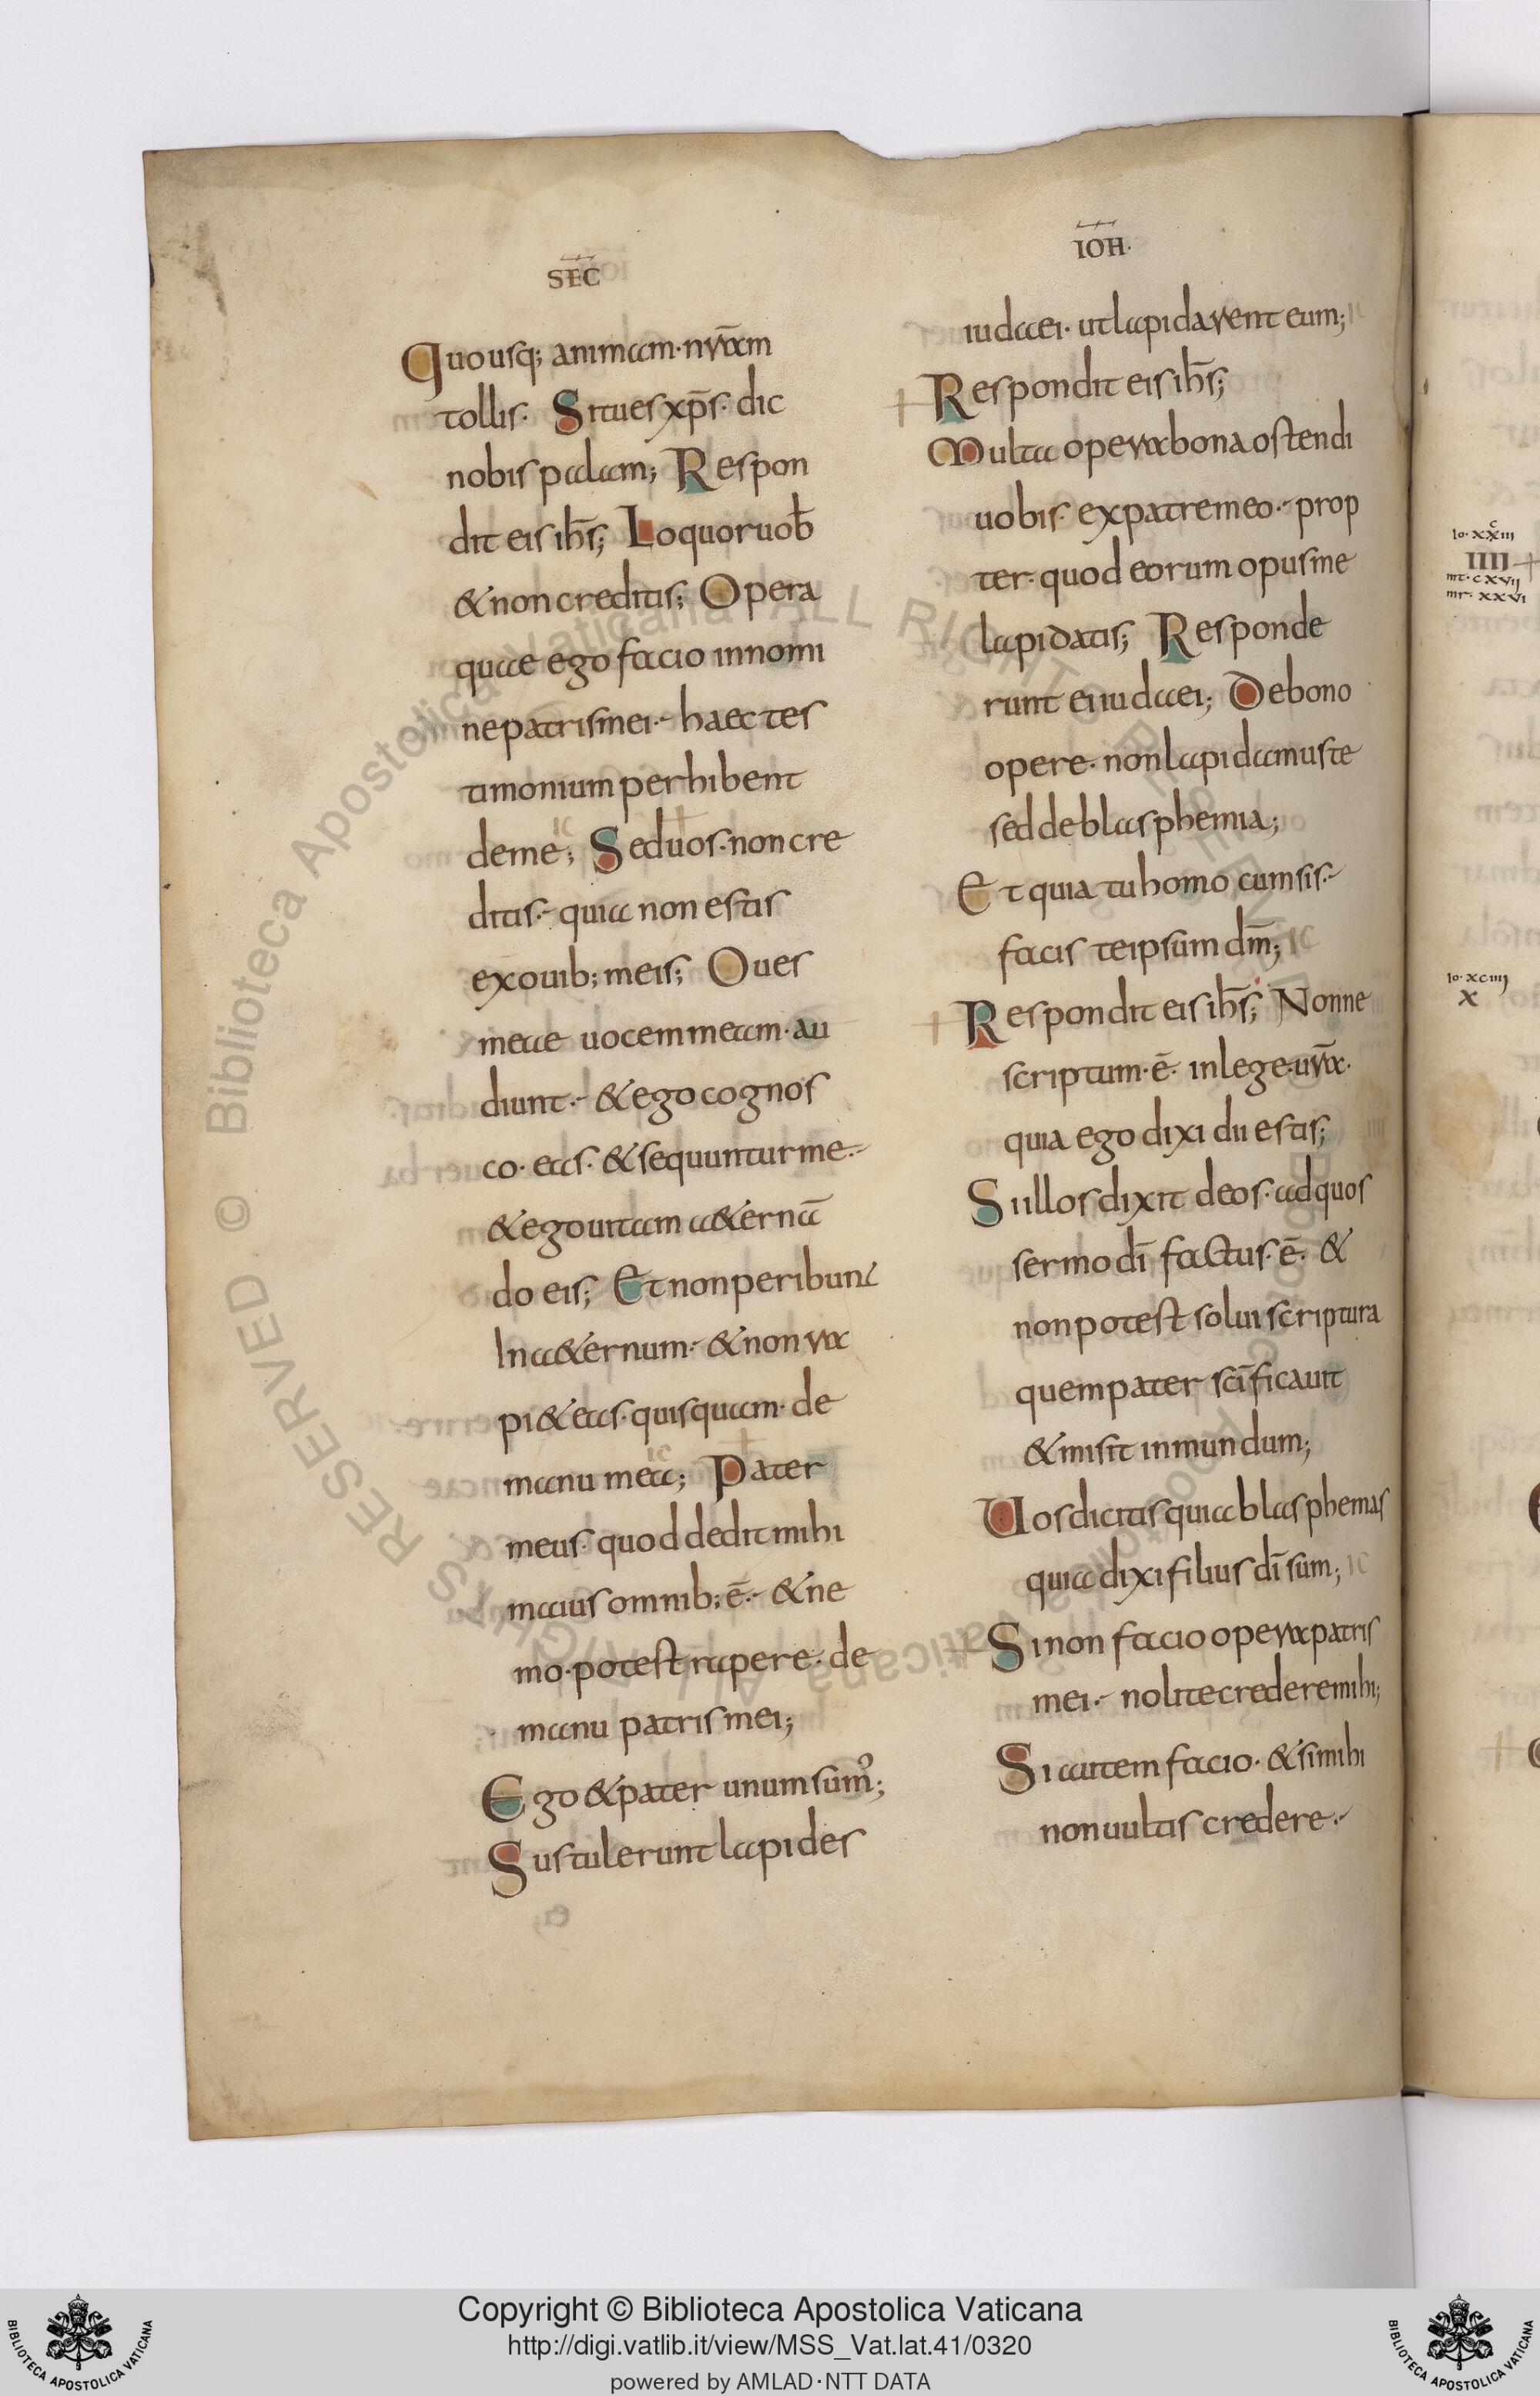 SEC̄
Quousq; animam· nr̄am
tollis· Situes xp̄s· dic
nobis palam; Respon
dit eis ih̄s; Loquor uob̄
&non creditis; Opera
quae ego facio innomi
nepatrismei·- haec tes
timonium perhibent
deme; Seduos·noncre
ditis·- quia non estis
exouib; meis; Oues
meae uocem meam·au
diunt·- &ego cognos
co· eas· &sequunturme·-
&egouitam a&ernā
do eis; Et nonperibunt
Ina&ernum·- &non ra
pi& eas· quisquam· de
manu mea; Pater
meus· quod dedit mihi
maius omnib; ē·- &ne
mo·potest rapere· de
manu patris mei;
Ego &pater unum sumꝰ;
Sustulerunt lapides
IOH̄·
iudaei· utlapidarent eum;
Respondit eis ih̄s;
Multa opera bona ostendi
uobis· expatremeo·- prop
ter· quod eorum opusme
lapidatis; Responde
runt ei iudaei; Debono
opere· non lapidamuste
sed deblasphemia;
Et quia tu homo cumsis·-
facis teipsum dm̄;
Respondit eis ih̄s; Nonne
scriptum·ē· inlege·ur̄a·
quia ego dixi dii estis;
Siillos dixit deos· adquos
sermo dī factus·ē· &
nonpotest solui scriptura
quempater scīficauit
&misit inmundum;
Uosdicitis quia blasphemas
quia dixi filius dī sum;
Sinon facio opera patris
mei·- nolite credere mihi;
Si autem facio· &simihi
nonuultis credere·-
Io· xxiii
c
IIII
mt· cxvii
mr· xxvi
Io· xciiij
x
Biblioteca Apostolica Vaticana ALL RIGHTS RESERVED ©
Copyright © Biblioteca Apostolica Vaticana
http://digi.vatlib.it/view/MSS_Vat.lat.41/0320
powered by AMLAD·NTT DATA
BIBLIOTECA APOSTOLICA VATICANA
BIBLIOTECA APOSTOLICA VATICANA